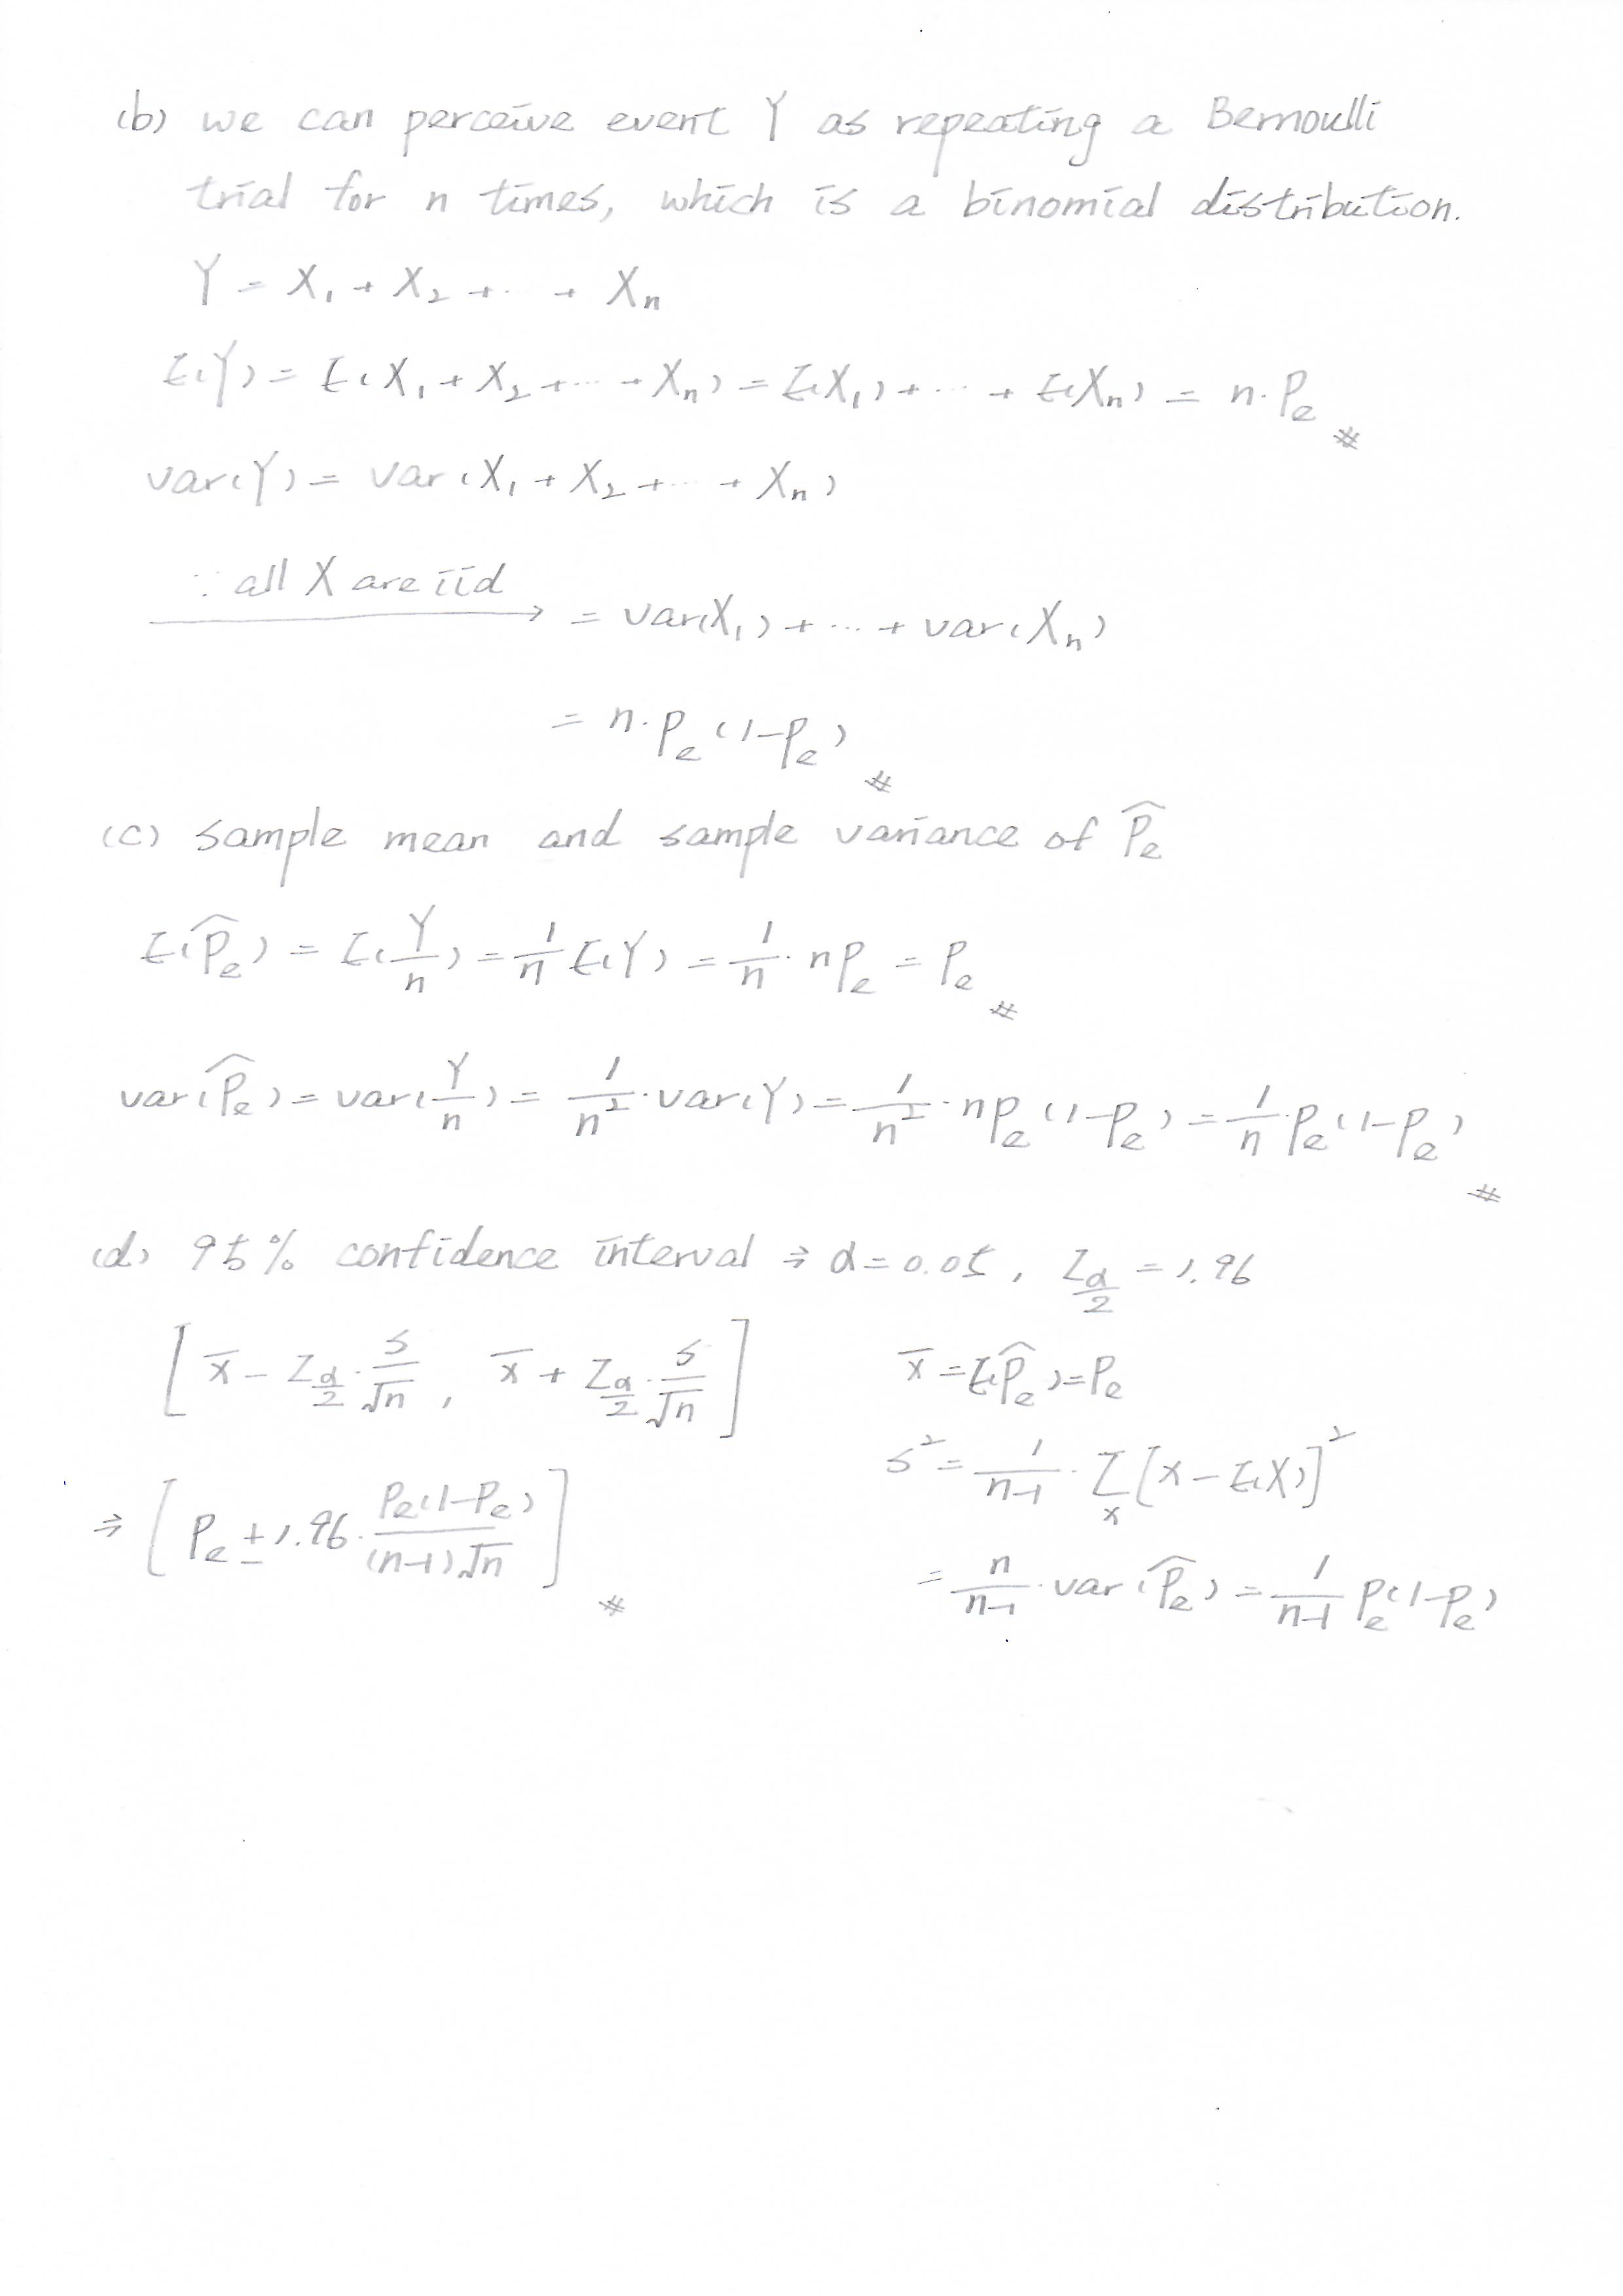 (b) we can perceive event Y as repeating a Bernoulli
trial for n times, which is a binomial distribution.
Y = X₁ + X₂ + ... + Xₙ
E(Y) = E(X₁ + X₂ + ... + Xₙ) = E(X₁) + ... + E(Xₙ) = n·Pe #
var(Y) = var(X₁ + X₂ + ... + Xₙ)
∵ all X are iid → = var(X₁) + ... + var(Xₙ)
= n·Pe(1-Pe) #
(c) sample mean and sample variance of P̂e
E(P̂e) = E(Y/n) = 1/n E(Y) = 1/n · nPe = Pe #
var(P̂e) = var(Y/n) = 1/n² · var(Y) = 1/n² · nPe(1-Pe) = 1/n Pe(1-Pe) #
(d) 95% confidence interval ⇒ α = 0.05, Zα/2 = 1.96
[x̄ - Zα/2 · s/√n, x̄ + Zα/2 · s/√n]
x̄ = E(P̂e) = Pe
s² = 1/(n-1) · Σx [x - E(X)]²
= n/(n-1) · var(P̂e) = 1/(n-1) Pe(1-Pe)
⇒ [Pe ± 1.96 · Pe(1-Pe)/((n-1)√n)] #